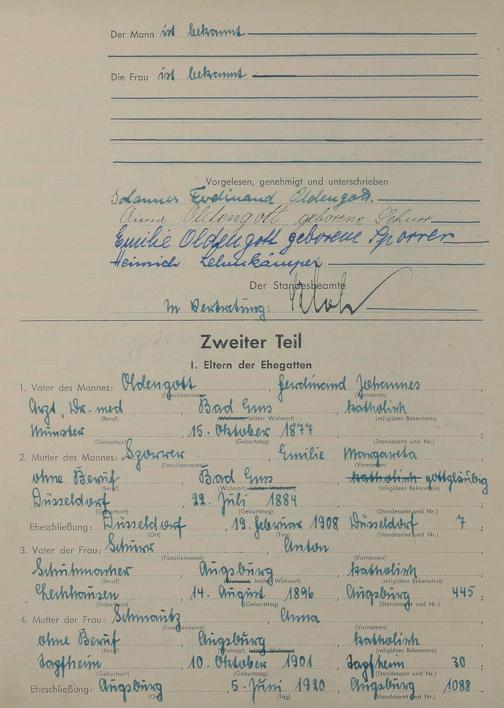 Der Mann ist bekannt
Die Frau ist bekannt
Vorgelesen, genehmigt und unterschrieben
Johannes Ferdinand Oldengott.
Anna Oldengott geborene Schurr
Emilie Oldengott geborene Sporrer
Heinrich Lehmkämper
Der Standesbeamte
In Vertretung:
Zweiter Teil
I. Eltern der Ehegatten
1. Vater des Mannes: Oldengott, Ferdinand Johannes
(Familienname) (Vornamen)
Arzt, Dr. med, Bad Ems, katholisch
(Beruf) (Wohnort, letzter Wohnort) (religiöses Bekenntnis)
Münster, 15. Oktober 1877
(Geburtsort) (Geburtstag) (Standesamt und Nr.)
2. Mutter des Mannes: Sporrer, Emilie Margareta
(Familienname) (Vornamen)
ohne Beruf, Bad Ems, katholisch gottgläubig
(Beruf) (Wohnort, letzter Wohnort) (religiöses Bekenntnis)
Düsseldorf, 22. Juli 1884
(Geburtsort) (Geburtstag) (Standesamt und Nr.)
Eheschließung: Düsseldorf, 19. Februar 1908 Düsseldorf 7
(Ort) (Tag) (Standesamt und Nr.)
3. Vater der Frau: Schurr, Anton
(Familienname) (Vornamen)
Schuhmacher, Augsburg, katholisch
(Beruf) (Wohnort, letzter Wohnort) (religiöses Bekenntnis)
Lechhausen, 14. August 1896, Augsburg 445
(Geburtsort) (Geburtstag) (Standesamt und Nr.)
4. Mutter der Frau: Schmautz, Anna
(Familienname) (Vornamen)
ohne Beruf, Augsburg, katholisch
(Beruf) (Wohnort, letzter Wohnort) (religiöses Bekenntnis)
Tapfheim, 10. Oktober 1901, Tapfheim 30
(Geburtsort) (Geburtstag) (Standesamt und Nr.)
Eheschließung: Augsburg, 5. Juni 1920, Augsburg 1088
(Ort) (Tag) (Standesamt und Nr.)